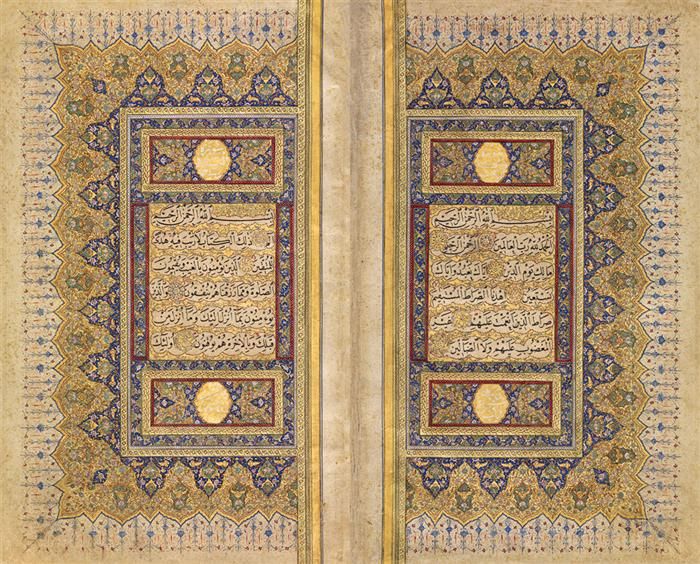 بسم الله الرحمن الرحيم
الحمد لله رب العالمين الرحمن الرحيم
مالك يوم الدين اياك نعبد واياك
نستعين اهدنا الصراط المستقيم
صراط الذين انعمت عليهم غير
المغضوب عليهم ولا الضالين
بسم الله الرحمن الرحيم
الم ذلك الكتاب لا ريب فيه هدى
للمتقين الذين يؤمنون بالغيب ويقيمون
الصلوة ومما رزقناهم ينفقون والذين
يؤمنون بما انزل اليك وما انزل من
قبلك وبالاخرة هم يوقنون اولئك